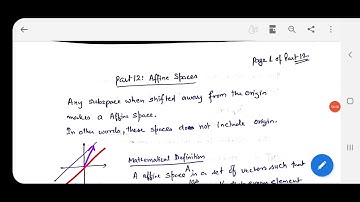 Page 1 of Part-12
Part 12: Affine Spaces
Any subspace when shifted away from the origin
makes a Affine Space.
In other words, these spaces do not include origin.
Mathematical Definition
A affine space is a set of vectors such that
element